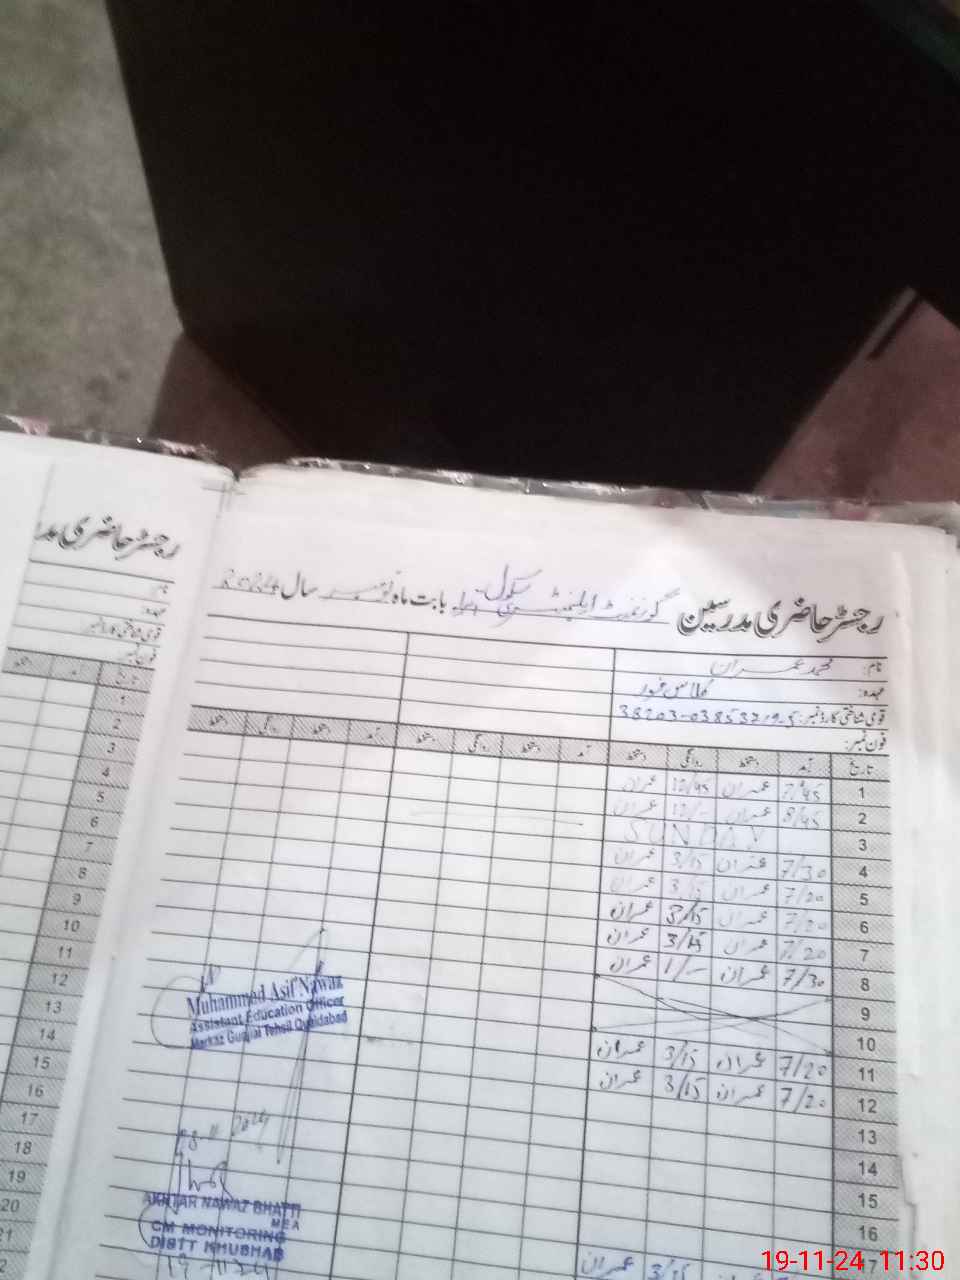 رجسٹر حاضری مدرسین گورنمنٹ ایلیمنٹری سکول بابت ماہ نومبر سال 2024
نام: محمد عمران
عہدہ: کلاس فور
قومی شناختی کارڈ نمبر: 38203-03853219-5
فون نمبر:
تاریخ آمد دستخط روانگی دستخط آمد دستخط روانگی دستخط آمد دستخط روانگی دستخط
1 7/45 عمران 12/45 عمران
2 8/45 عمران 12/- عمران
3 SUNDAY
4 7/30 عمران 3/15 عمران
5 7/20 عمران 3/15 عمران
6 7/20 عمران 3/15 عمران
7 7/20 عمران 3/15 عمران
8 7/30 عمران 1/- عمران
9
10
11 7/20 عمران 3/15 عمران
12 7/20 عمران 3/15 عمران
13
14
15
16
17 3/15 عمران
Muhammad Asif Nawaz
Assistant Education Officer
Markaz Gunjial Tehsil Quaidabad
2024
AKHTAR NAWAZ BHATTI
MEA
CM MONITORING
DISTT KHUSHAB
19-11-24
رجسٹر حاضری
نام:
عہدہ:
قومی شناختی کارڈ نمبر
فون نمبر
تاریخ آمد دستخط
1
2
3
4
5
6
7
8
9
10
11
12
13
14
15
16
17
18
19
20
21
19-11-24 11:30